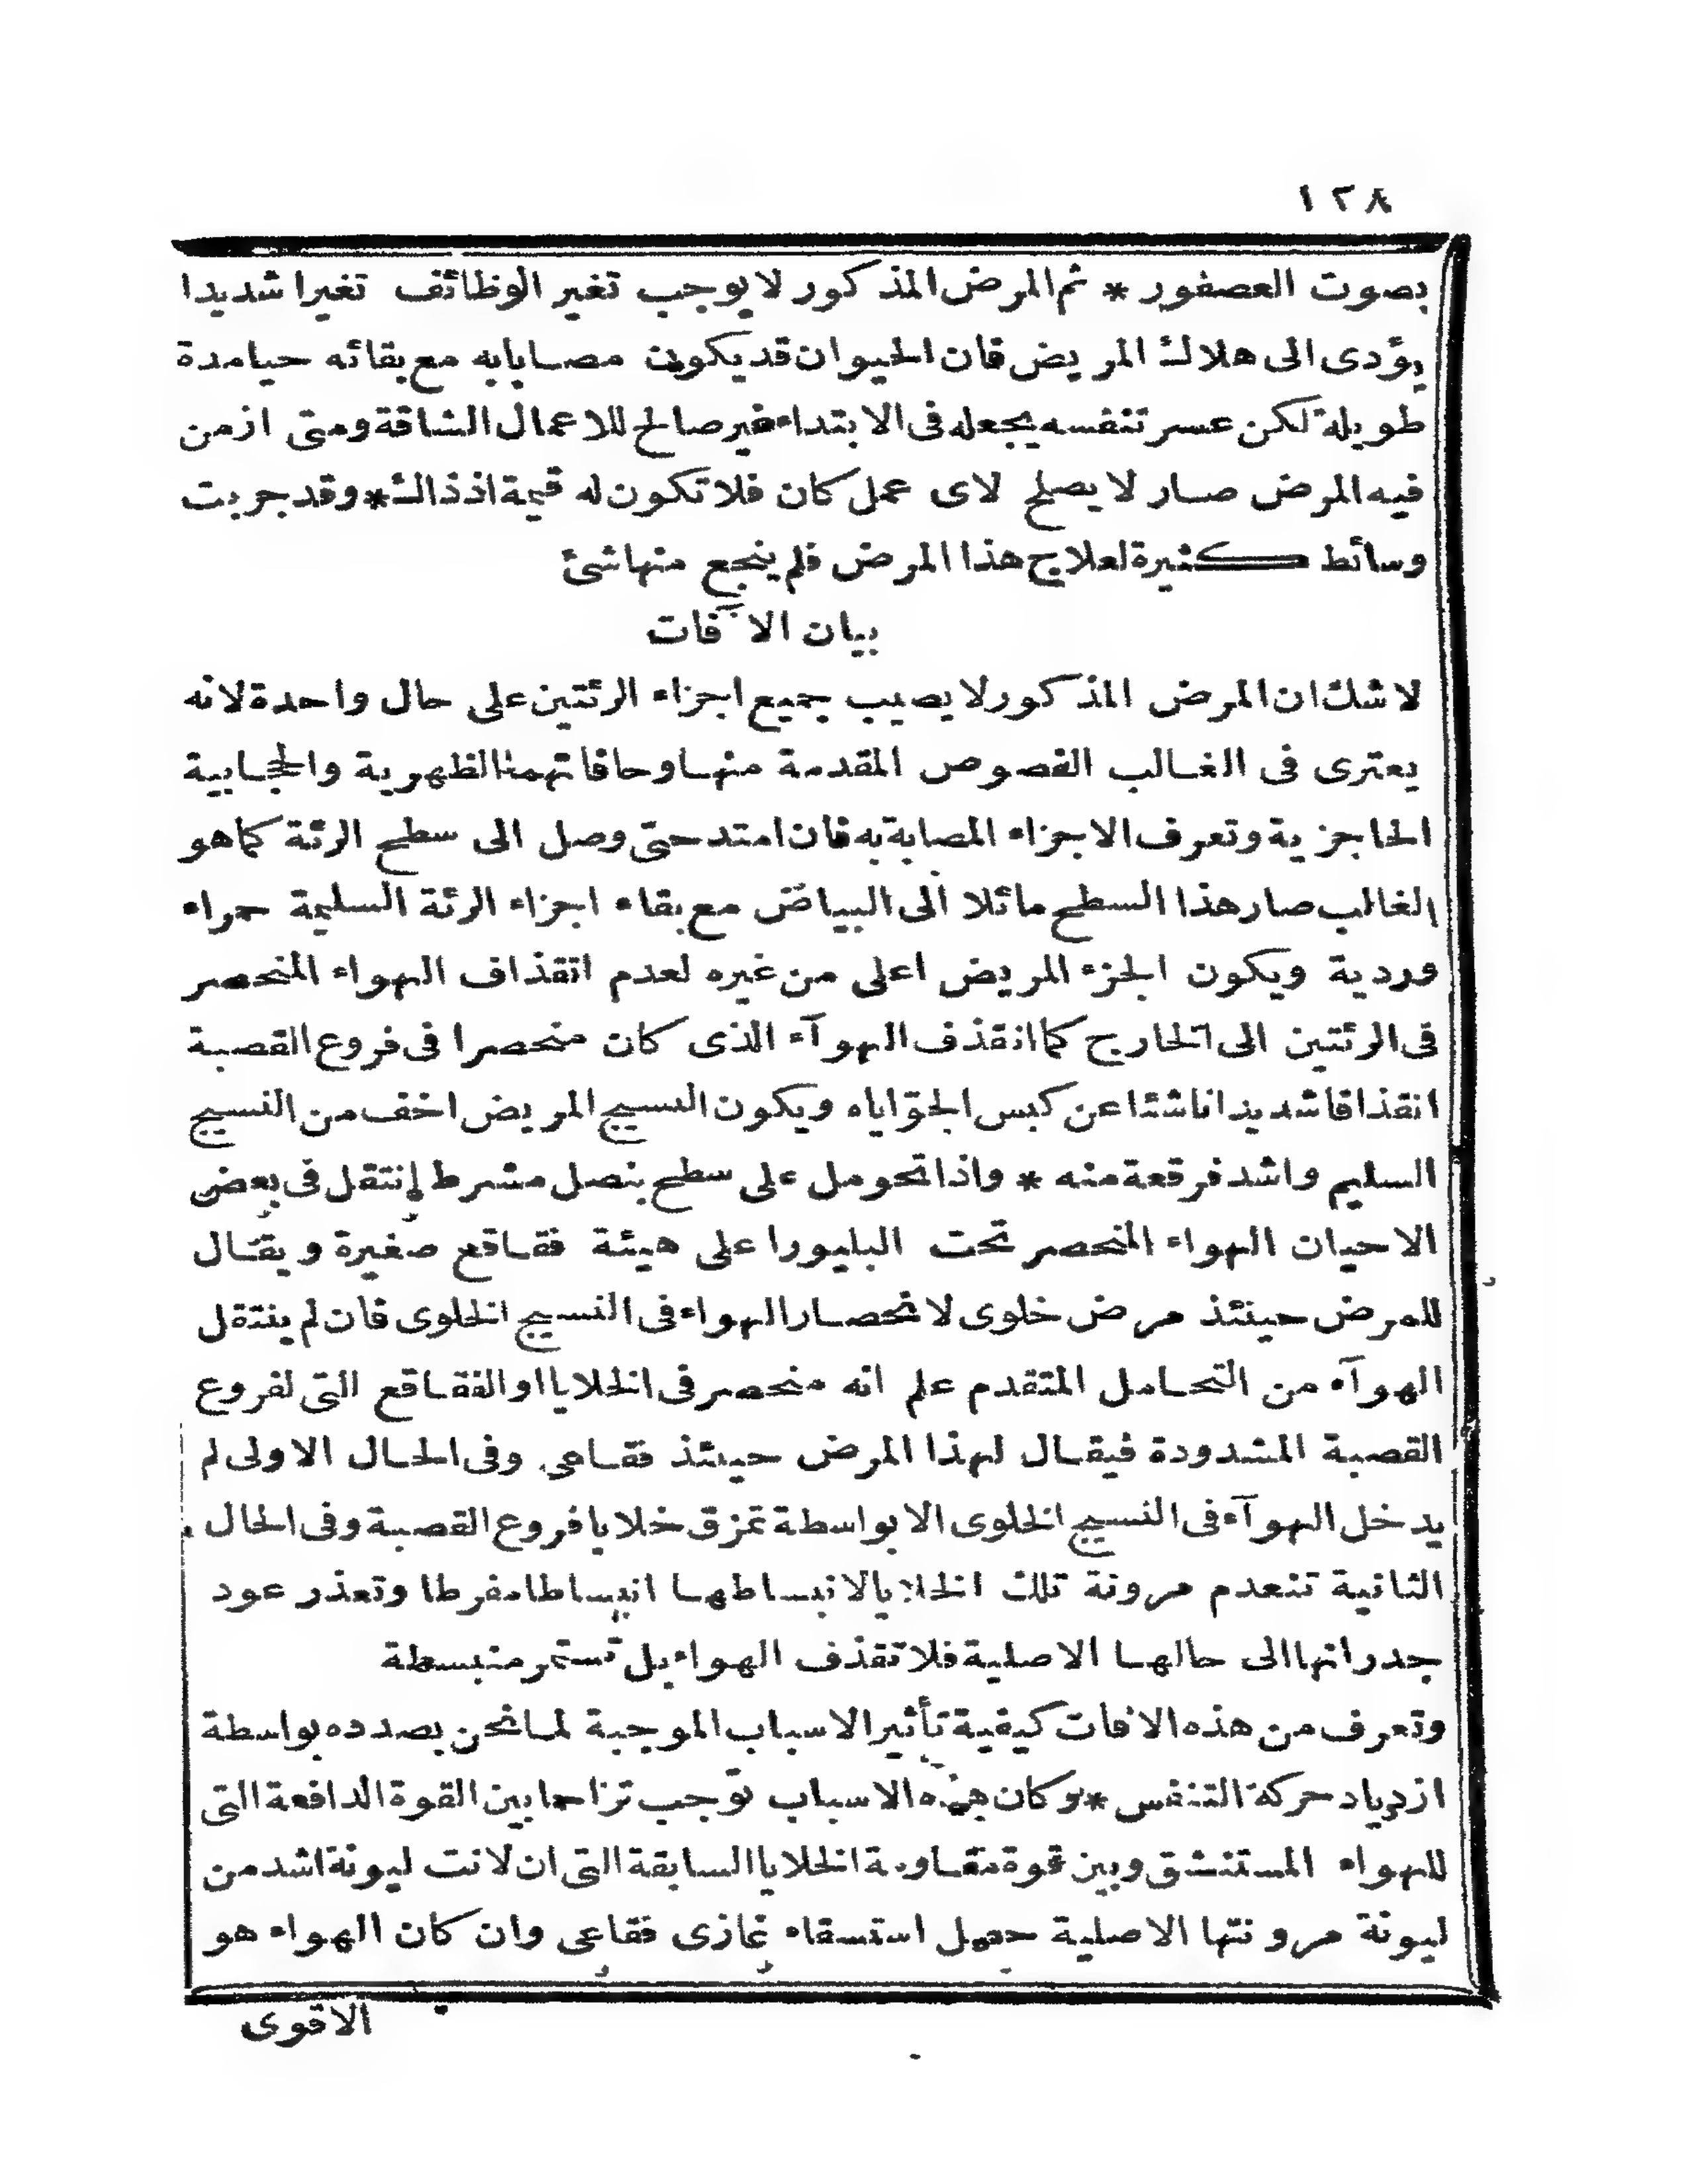 ١٢٨
بصوت العصفور * ثم المرض المذكور لا يوجب تغير الوظائف تغيرا شديدا
يؤدى الى هلاك المريض فان الحيوان قد يكون مصابا به مع بقائه حيا مدة
طويلة لكن عسر تنفسه يجعله فى الابتداء غير صالح للاعمال الشاقة ومتى ازمن
فيه المرض صار لا يصلح لاى عمل كان فلا تكون له قيمة اذ ذاك * وقد جربت
وسائط كثيرة لعلاج هذا المرض فلم ينجع منها شئ
بيان الآفات
لا شك ان المرض المذكور لا يصيب جميع اجزاء الرئتين على حال واحدة لانه
يعترى فى الغالب الفصوص المقدمة منها وحافاتهما الظهرية والحجابية
الحاجزية وتعرف الاجزاء المصابة به فان امتد حتى وصل الى سطح الرئة كما هو
الغالب صار هذا السطح مائلا الى البياض مع بقاء اجزاء الرئة السليمة حمراء
وردية ويكون الجزء المريض اعلى من غيره لعدم انقذاف الهواء المنحصر
فى الرئتين الى الخارج كما انقذف الهوآء الذى كان منحصرا فى فروع القصبة
انقذافا شديدا ناشئا عن كبس الجوّ اياه ويكون النسيج المريض اخف من النسيج
السليم واشد فرقعة منه * واذا تحومل على سطح بنصل مشرط انتقل فى بعض
الاحيان الهواء المنحصر تحت البليورا على هيئة فقاقع صغيرة ويقال
للمرض حينئذ مرض خلوى لانحصار الهواء فى النسيج الخلوى فان لم ينتقل
الهوآء من التحامل المتقدم علم انه منحصر فى الخلايا او الفقاقع التى لفروع
القصبة المشدودة فيقال لهذا المرض حينئذ فقاعى وفى الحال الاولى لم
يدخل الهوآء فى النسيج الخلوى الا بواسطة تمزق خلايا فروع القصبة وفى الحال
الثانية تنعدم مرونة تلك الخلايا لانبساطها انبساطا مفرطا وتعذر عود
جدرانها الى حالها الاصلية فلا تقذف الهواء بل تستمر منبسطة
وتعرف من هذه الآفات كيفية تأثير الاسباب الموجبة لما نحن بصدده بواسطة
ازدياد حركة التنفس * وكان هذه الاسباب توجب تزاحما بين القوة الدافعة التى
للهواء المستنشق وبين قوة مقاومة الخلايا السابقة التى ان لانت ليونة اشد من
ليونة مرونتها الاصلية حصل استسقاء غازى فقاعى وان كان الهواء هو
الاقوى